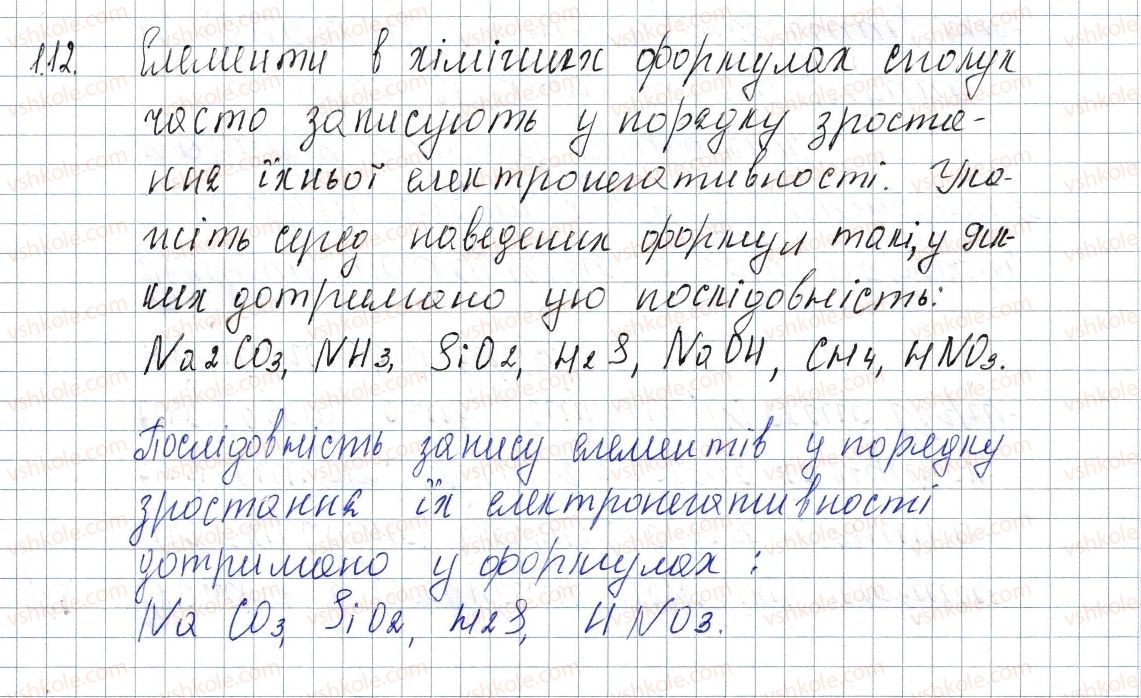 1.12. Елементи в хімічних формулах сполук
часто записують у порядку зроста-
ння їхньої електронегативності. Ука-
жіть серед наведених формул такі, у як-
ких дотримано цю послідовність:
Na2CO3, NH3, SiO2, H2S, NaOH, CH4, HNO3.
Послідовність запису елементів у порядку
зростання їх електронегативності
дотримано у формулах:
Na CO3, SiO2, H2S, HNO3.